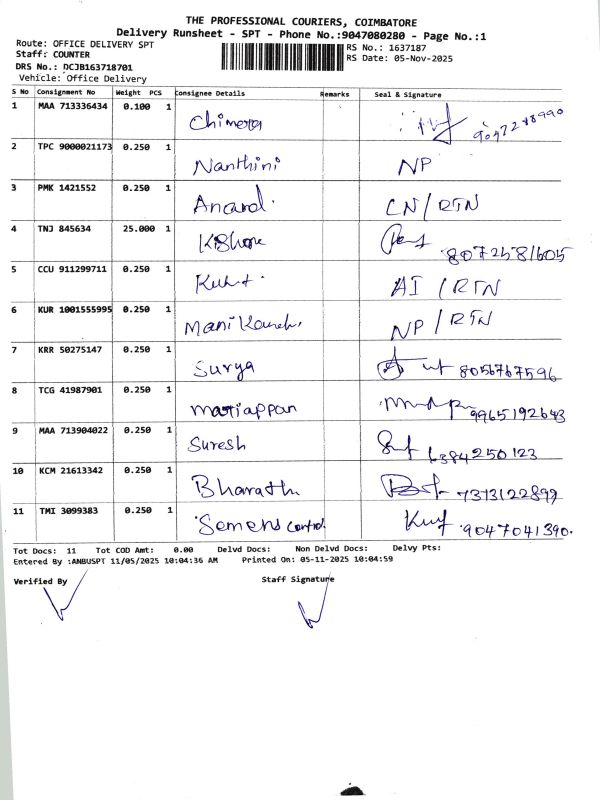 THE PROFESSIONAL COURIERS, COIMBATORE
Delivery Runsheet - SPT - Phone No.:9047080280 - Page No.:1
Route: OFFICE DELIVERY SPT RS No.: 1637187
Staff: COUNTER RS Date: 05-Nov-2025
DRS No.: DCJB163718701
Vehicle: Office Delivery
S No Consignment No Weight PCS Consignee Details Remarks Seal & Signature
1 MAA 713336434 0.100 1 Chimera
2 TPC 9000021173 0.250 1 Nanthini NP
3 PMK 1421552 0.250 1 Anand. CN/RTN
4 TNJ 845634 25.000 1 Kishore 8072581605
5 CCU 911299711 0.250 1 AI / RTN
6 KUR 1001555995 0.250 1 NP / RTN
7 KRR 50275147 0.250 1 Surya 8056767596
8 TCG 41987901 0.250 1 mariappan 9965192643
9 MAA 713904022 0.250 1 Suresh 6384250123
10 KCM 21613342 0.250 1 Bharath 7373122899
11 TMI 3099383 0.250 1 control 9047041390.
Tot Docs: 11 Tot COD Amt: 0.00 Delvd Docs: Non Delvd Docs: Delvy Pts:
Entered By :ANBUSPT 11/05/2025 10:04:36 AM Printed On: 05-11-2025 10:04:59
Verified By Staff Signature